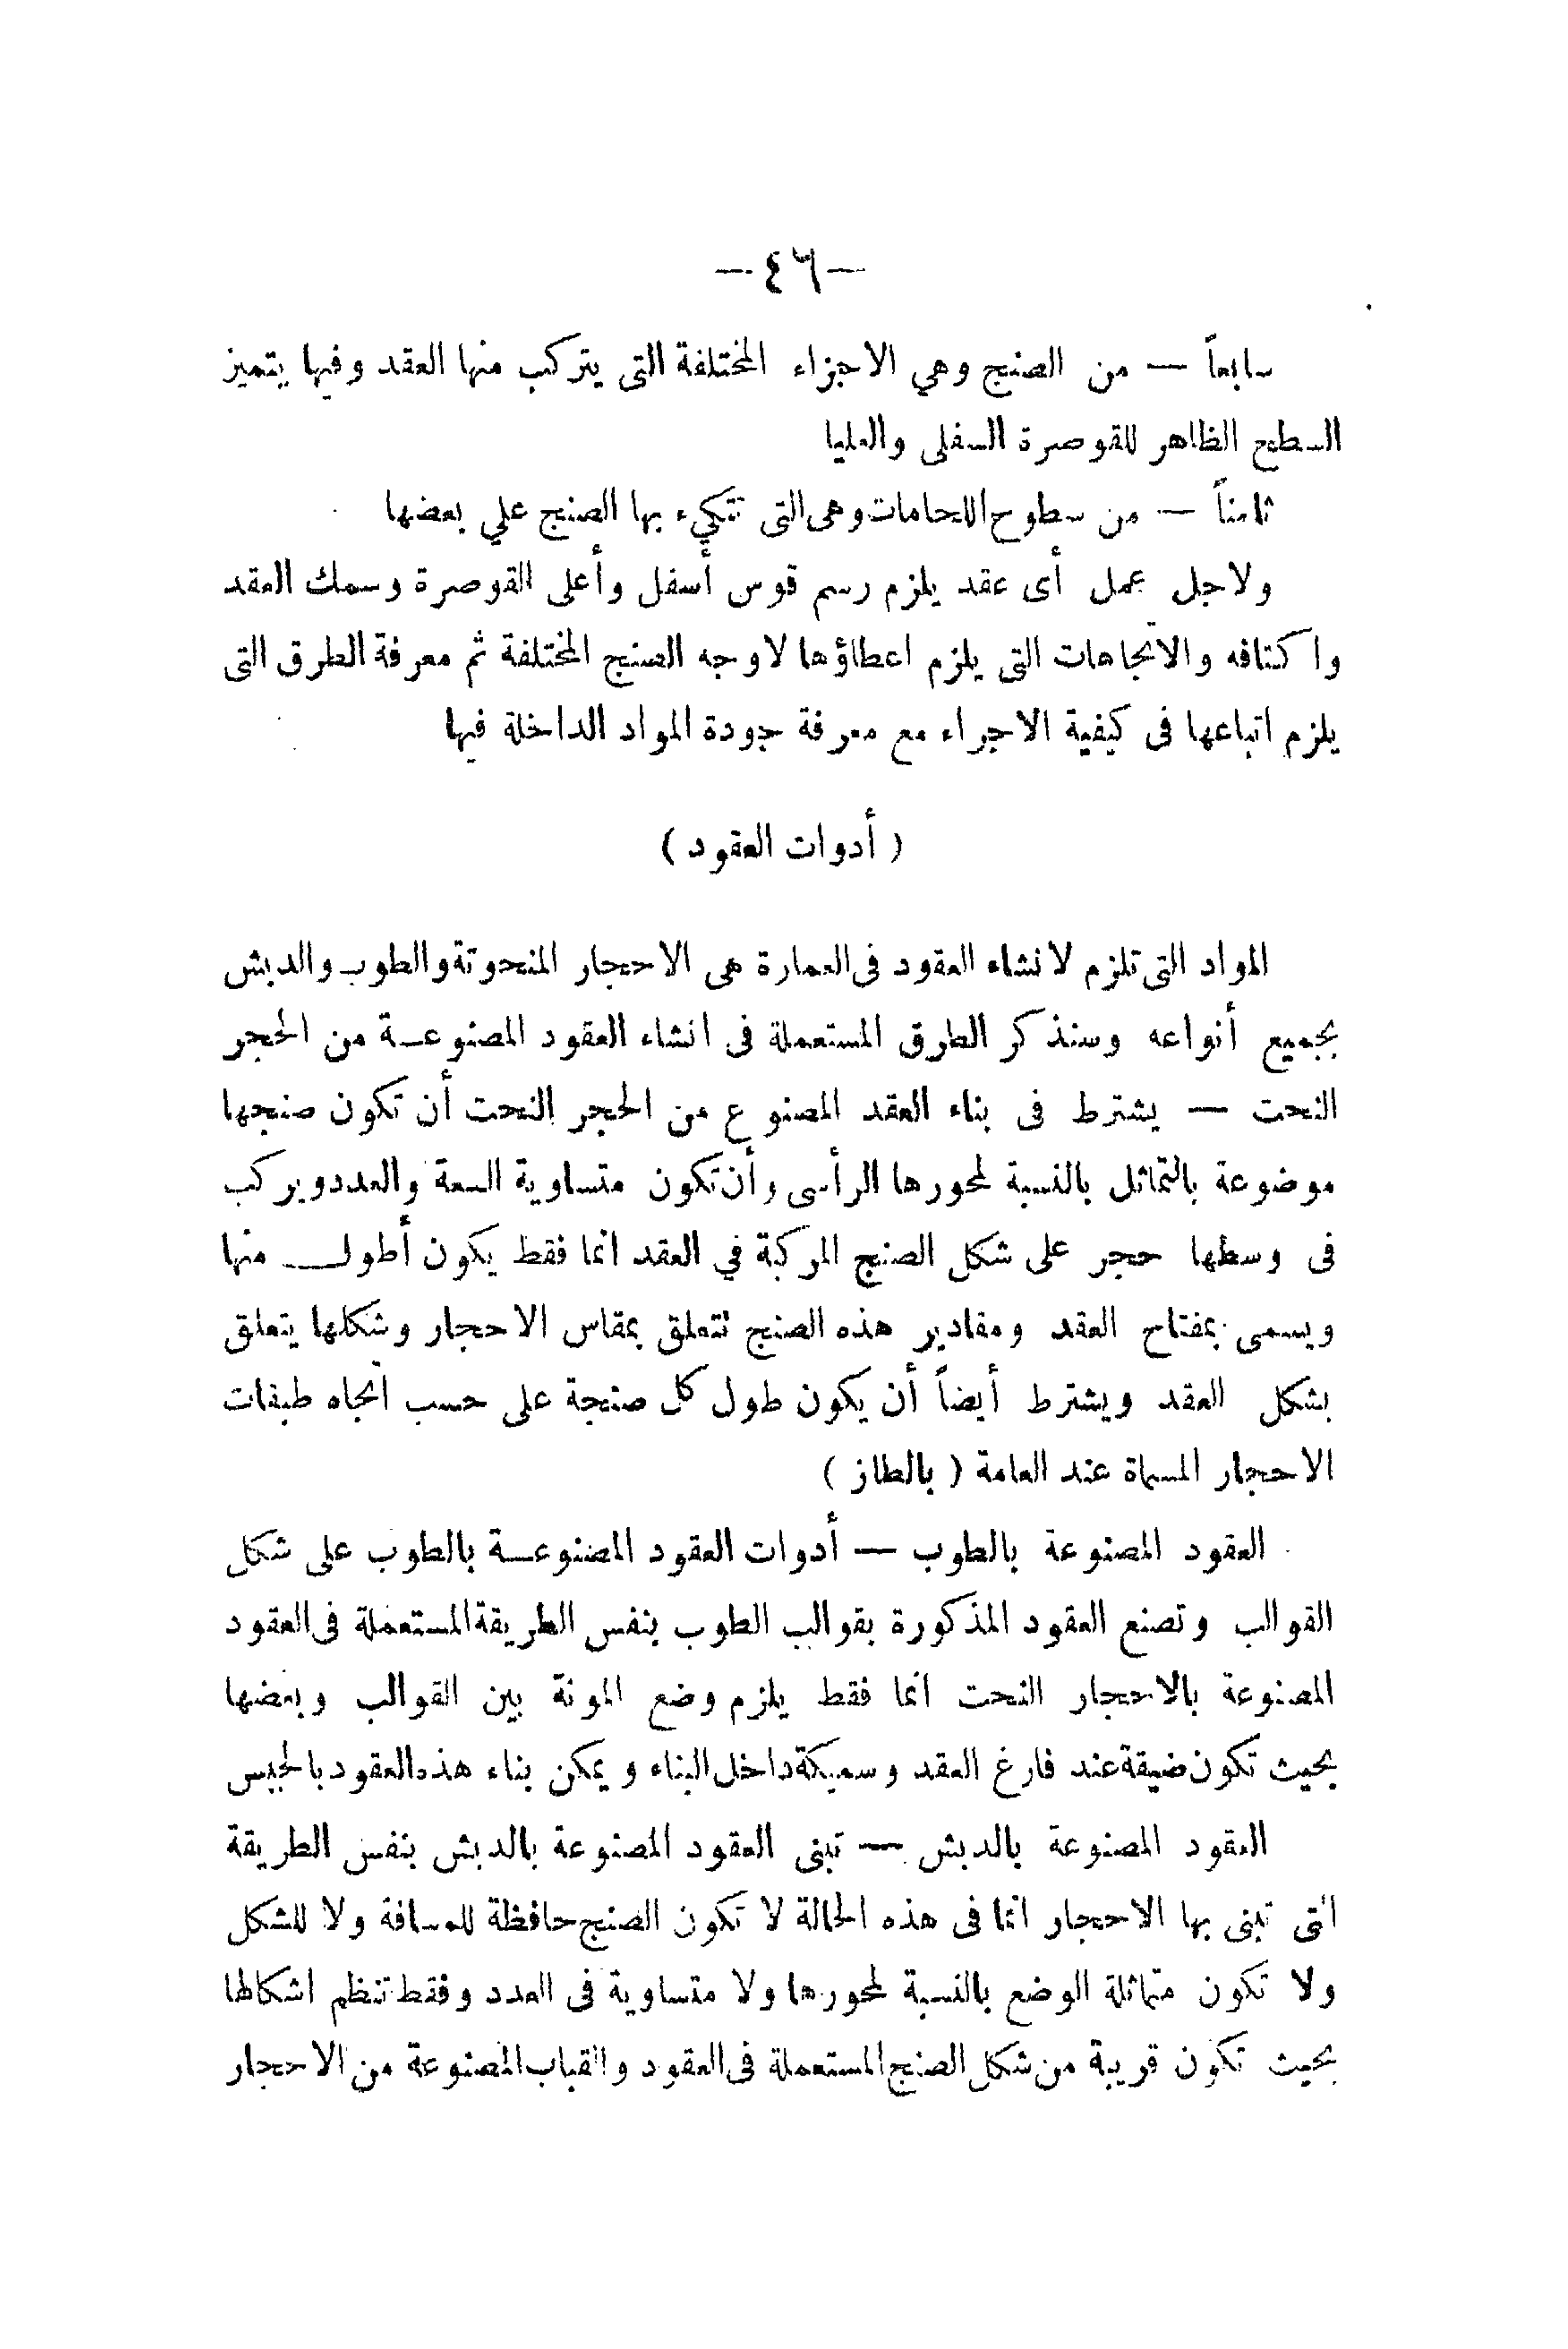 —٤٦—
سابعاً — من الصنج وهي الاجزاء المختلفة التى يتركب منها العقد وفيها يتميز
السطح الظاهر للقوصرة السفلى والعليا
ثامناً — من سطوح اللحامات وهى التى تتكيء بها الصنج علي بعضها
ولاجل عمل أى عقد يلزم رسم قوس أسفل وأعلى القوصرة وسمك العقد
واكتافه والاتجاهات التى يلزم اعطاؤها لاوجه الصنج المختلفة ثم معرفة الطرق التى
يلزم اتباعها فى كيفية الاجراء مع معرفة جودة المواد الداخلة فيها
( أدوات العقود )
المواد التى تلزم لانشاء العقود فى العمارة هى الاحجار المنحوتة والطوب والدبش
بجميع أنواعه وسنذكر الطرق المستعملة فى انشاء العقود المصنوعة من الحجر
النحت — يشترط فى بناء العقد المصنوع من الحجر النحت أن تكون صنجها
موضوعة بالتماثل بالنسبة لمحورها الرأسى وأن تكون متساوية السعة والعدد ويركب
فى وسطها حجر على شكل الصنج المركبة في العقد انما فقط يكون أطول منها
ويسمى بمفتاح العقد ومقادير هذه الصنج تتعلق بمقاس الاحجار وشكلها يتعلق
بشكل العقد ويشترط أيضاً أن يكون طول كل صنجة على حسب اتجاه طبقات
الاحجار المسماة عند العامة ( بالطاز )
العقود المصنوعة بالطوب — أدوات العقود المصنوعة بالطوب على شكل
القوالب وتصنع العقود المذكورة بقوالب الطوب بنفس الطريقة المستعملة فى العقود
المصنوعة بالاحجار النحت انما فقط يلزم وضع المونة بين القوالب وبعضها
بحيث تكون ضيقة عند فارغ العقد وسميكة داخل البناء ويمكن بناء هذه العقود بالجبس
العقود المصنوعة بالدبش — تبنى العقود المصنوعة بالدبش بنفس الطريقة
التى تبنى بها الاحجار انما فى هذه الحالة لا تكون الصنج حافظة للمسافة ولا للشكل
ولا تكون متماثلة الوضع بالنسبة لمحورها ولا متساوية فى العدد وفقط تنظم اشكالها
بحيث تكون قريبة من شكل الصنج المستعملة فى العقود والقباب المصنوعة من الاحجار